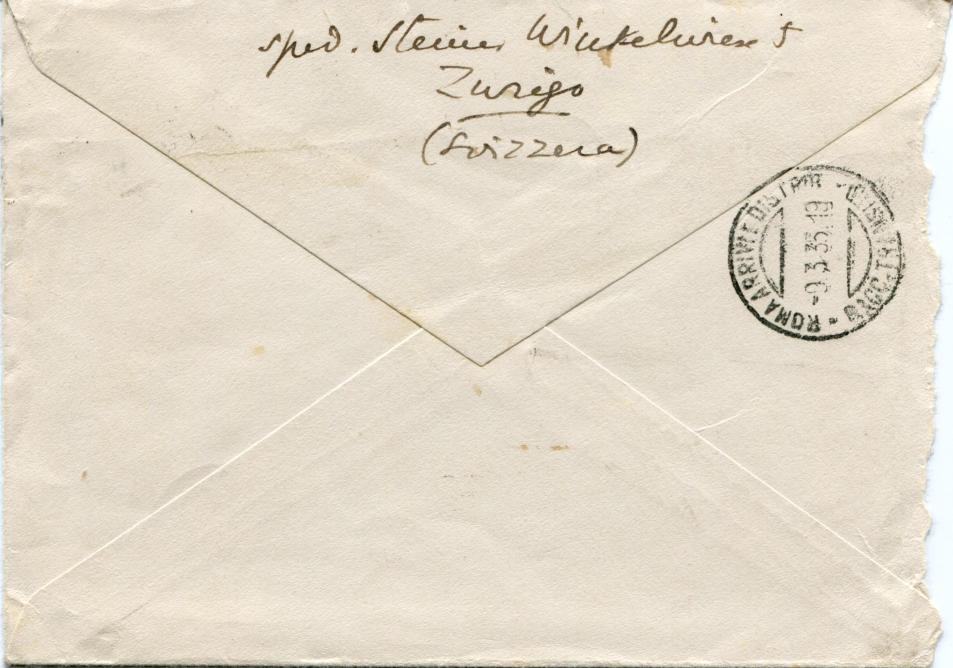 sped. Steiner Winkelwiese 5
Zurigo
(Svizzera)
ROMA ARRIVI E DISTRIB
RACC
-9.3.35.19